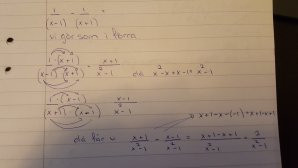 1/(x-1) - 1/(x+1)
vi gör som i förra
1·(x+1)/((x-1)·(x+1)) = (x+1)/(x²-1) då x²-x+x-1= x²-1
1·(x-1)/((x+1)·(x-1)) (x-1)/(x²-1)
x+1-x-(-1)=x+1-x+1
då får vi (x+1)/(x²-1) - (x-1)/(x²-1) = (x+1-x+1)/(x²-1) = 2/(x²-1)